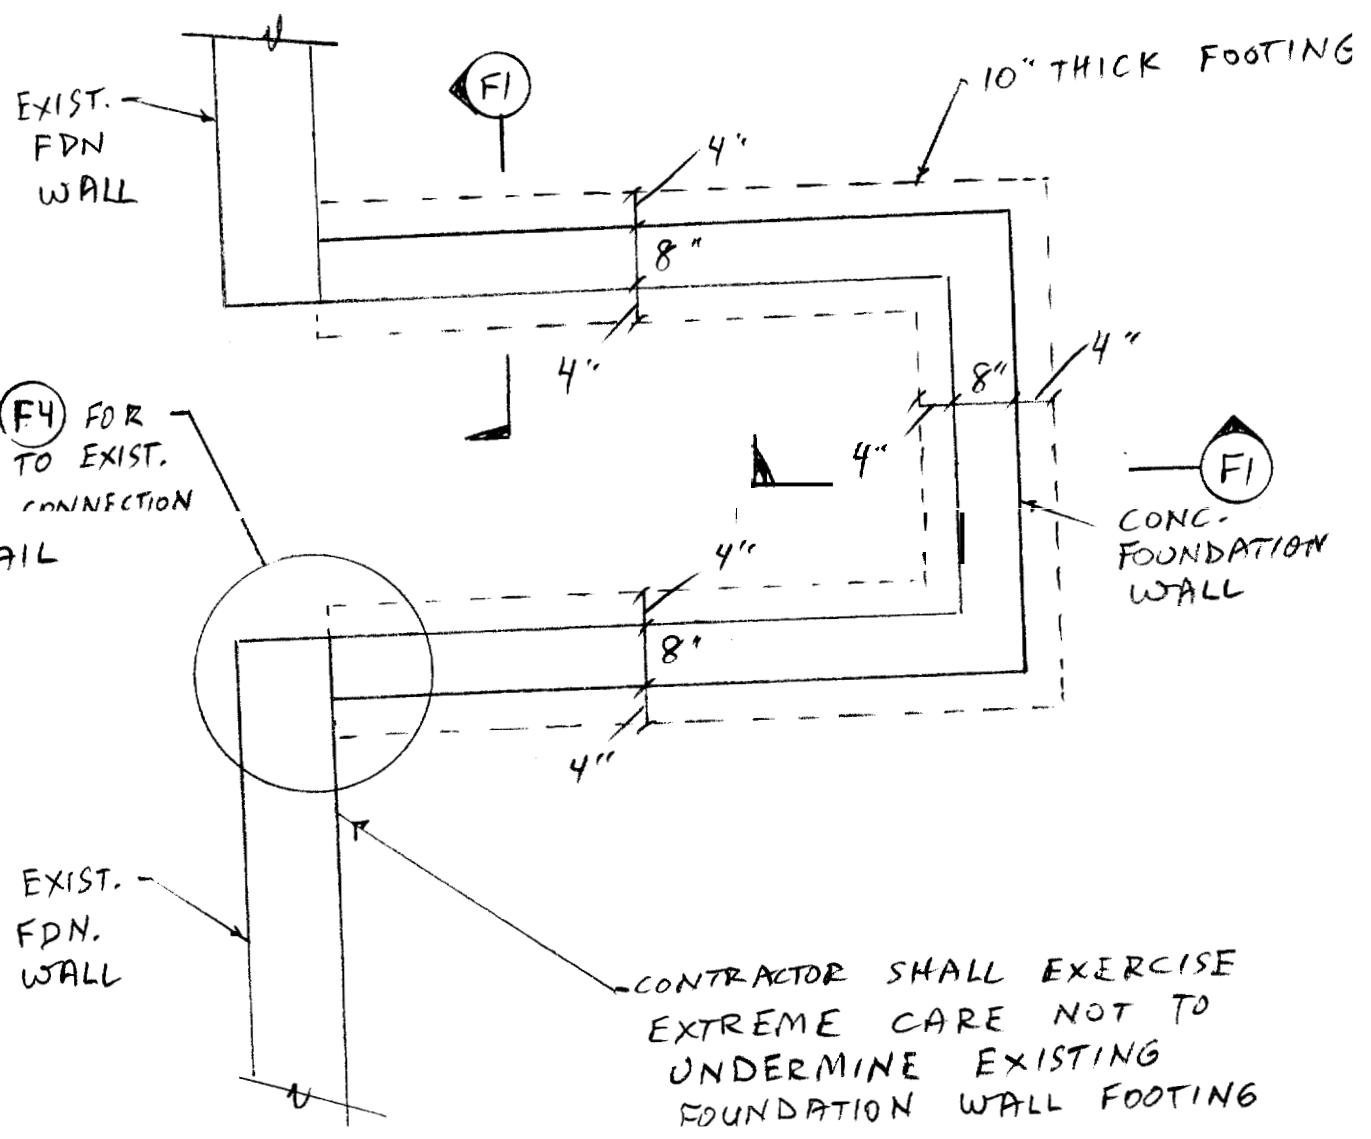 F1
10" THICK FOOTING
EXIST.
FDN
WALL
4"
8"
4"
4"
8"
4"
F4 FOR
TO EXIST.
CONNECTION
AIL
F1
CONC.
FOUNDATION
WALL
4"
8"
4"
EXIST.
FDN.
WALL
CONTRACTOR SHALL EXERCISE
EXTREME CARE NOT TO
UNDERMINE EXISTING
FOUNDATION WALL FOOTING